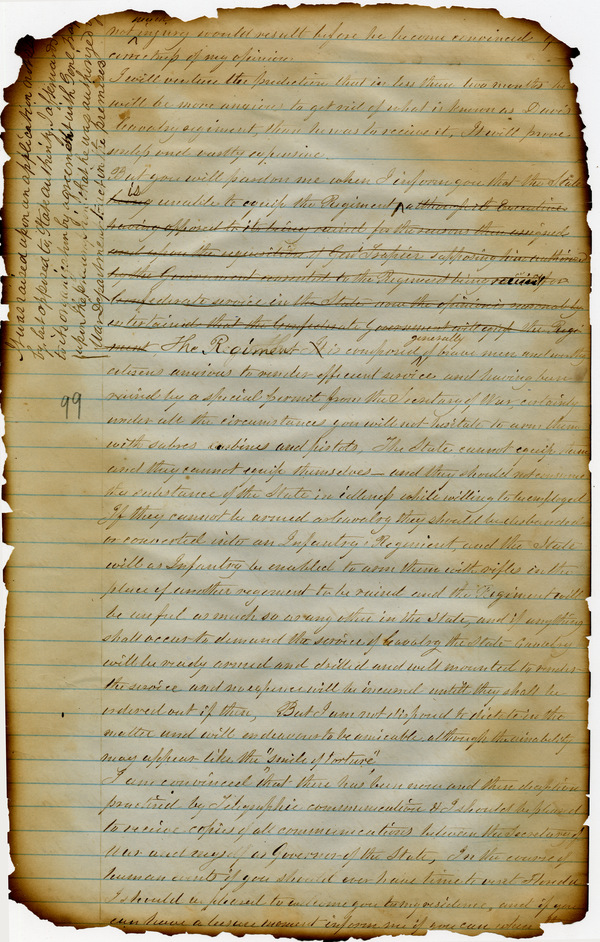 much
not injury would result before he become convinced of the
correctness of my opinion.
I will venture the prediction that in less than two months he
will be more anxious to get rid of what is known as Davis'
Cavalry regiment, than he was to receive it. It will prove
and vastly expensive.
But you will pardon me when I inform you that the State
is
being unable to equip the Regiment, although its Executive
having opposed to its being raised for the reasons then assigned
and upon the requisition of Gen Trapier supposing him authorised
by the Government consented to the Regiment being
Confederate service in the State now the opinion is not only
entertained that the Confederate Government will equip the Regi-
generally
ment, The Regiment is composed of brave men and worthy
citizens anxious to render efficient service, and having been
raised by a special permit from the Secretary of War, certainly
under all the circumstances you will not hesitate to arm them
with sabres carbines and pistols. The State cannot equip them
and they cannot equip themselves — and they should not consume
the substance of the State in idleness while willing to be employed
If they cannot be armed as Cavalry they should be disbanded
or converted into an Infantry Regiment, and the State
will as Infantry be enabled to arm them with rifles in the
place of another regiment to be raised and the Regiment will
be useful as much so as any other in the State, and if any thing
shall occur to demand the service of Cavalry the State Cavalry
will be ready armed and drilled and well mounted to render
the service and no expence will be incurred until they shall be
ordered out if then, But I am not disposed to dictate in the
matter and will endeavor to be amicable although the amicability
may appear like the "smile of torture"
I am convinced that there has been now and then deception
practised by Telegraphic communication & I should be pleased
to receive copies of all communications between the Secretary of
War and myself as Governor of the State, In the course of
human events if you should ever have time to visit Florida
I should be pleased to welcome you to my residence, and if you
can have a leisure moment inform me if you can when
It was raised upon an application not
only opposed to State authority
its organization by agreement with Genl
upon the that he was authorized by
War Department to enter the premises
99